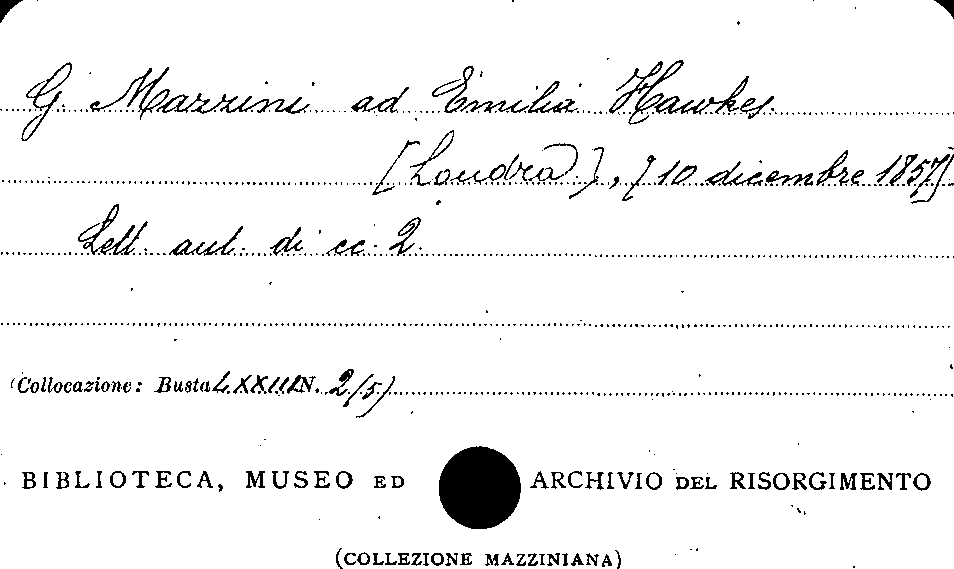 G. Mazzini ad Emilia Hawkes.
[Londra], [10 dicembre 1857]
Lett. aut. di cc. 2.
(Collocazione: Busta LXXIII N. 2(5)
BIBLIOTECA, MUSEO ED ARCHIVIO DEL RISORGIMENTO
(COLLEZIONE MAZZINIANA)